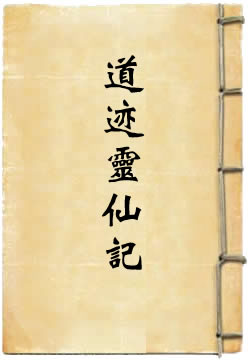 道迹靈仙記